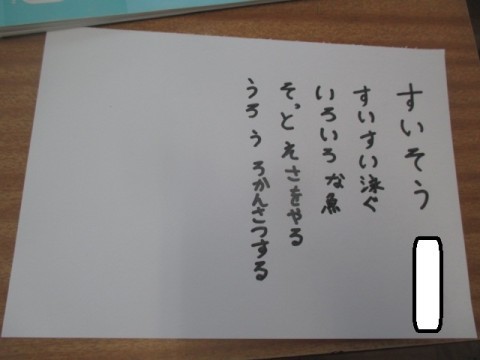 すいそう
すいすい泳ぐ
いろいろな魚
そっとえさをやる
うろうろかんさつする